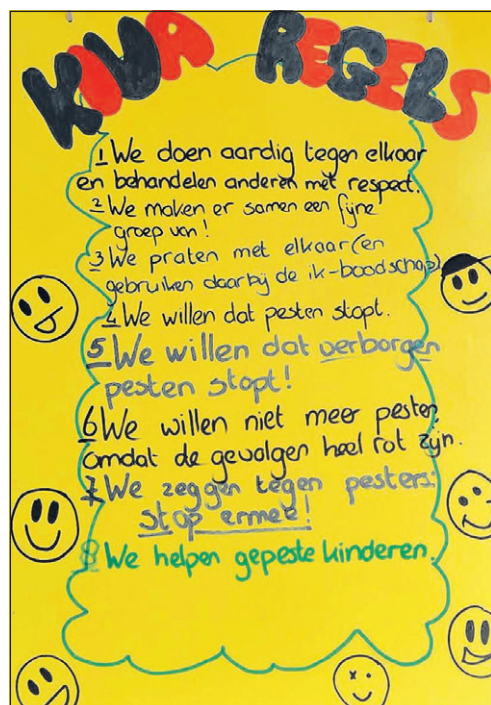 KIVA REGELS
1 We doen aardig tegen elkaar
en behandelen anderen met respect.
2 We maken er samen een fijne
groep van!
3 We praten met elkaar (en
gebruiken daarbij de ik-boodschap)
4 We willen dat pesten stopt.
5 We willen dat verborgen
pesten stopt!
6 We willen niet meer pesten,
omdat de gevolgen heel rot zijn.
7 We zeggen tegen pesters:
stop ermee!
8 We helpen gepeste kinderen.